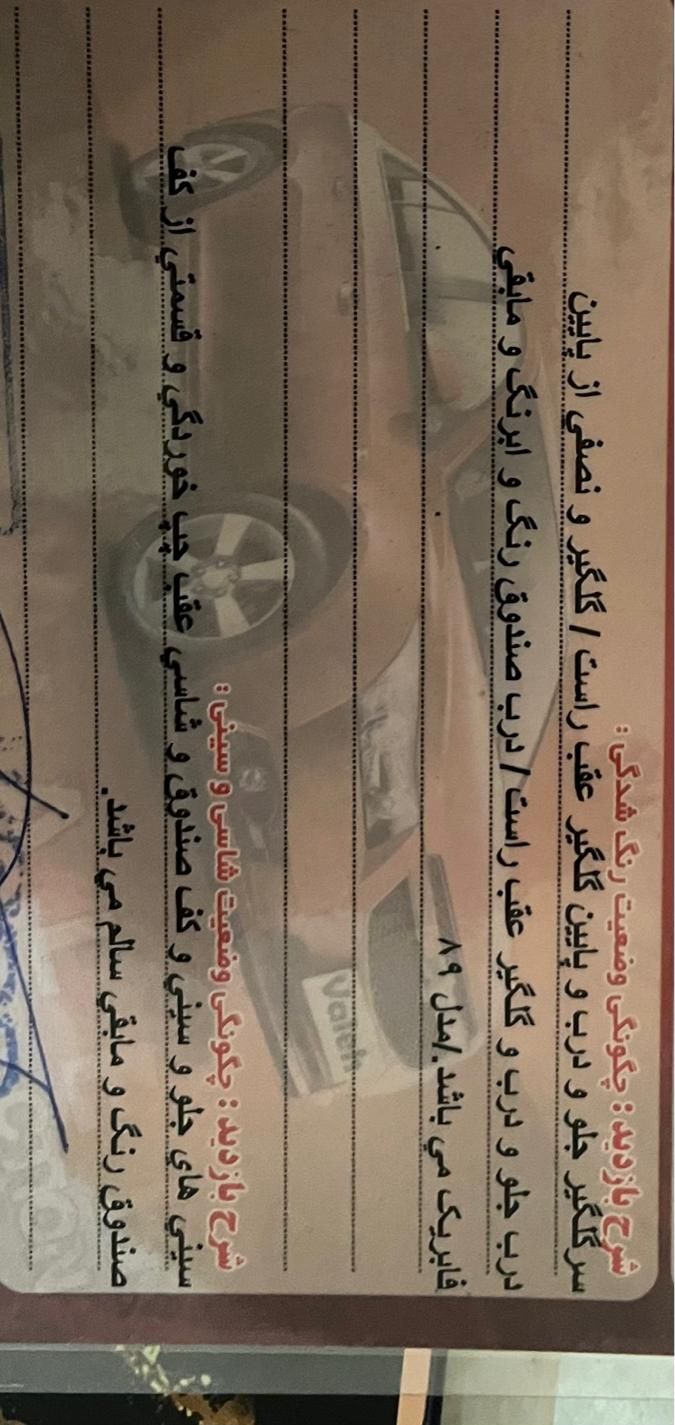 شرح بازدید : چگونگی وضعیت رنگ شدگی :
سرگلگیر جلو و درب و پایین گلگیر عقب راست / گلگیر و نصفی از پایین
درب جلو و درب و گلگیر عقب راست / درب صندوق رنگ و ابرنگ و مابقی
فابریک می باشد ./مدل ۸۹
شرح بازدید : چگونگی وضعیت شاسی و سینی :
سینی های جلو و سینی و کف صندوق و شاسی عقب چپ خوردگی و قسمتی از کف
صندوق رنگ و مابقی سالم می باشد.
Valeh